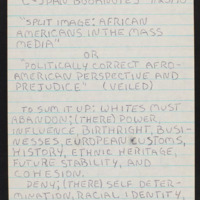 C-SPAN BOOKNOTES
"SPLIT IMAGE: AFRICAN
AMERICANS IN THE MASS
MEDIA"
OR
"POLITICALLY CORRECT AFRO-
AMERICAN PERSPECTIVE AND
PREJUDICE" (VEILED)
TO SUM IT UP: WHITES MUST
ABANDON; (THERE) POWER,
INFLUENCE, BIRTHRIGHT, BUSI-
NESSES, EUROPEAN CUSTOMS,
HISTORY, ETHNIC HERITAGE,
FUTURE STABILITY, AND
COHESION.
DENY; (THERE) SELF DETER-
MINATION, RACIAL IDENTITY,